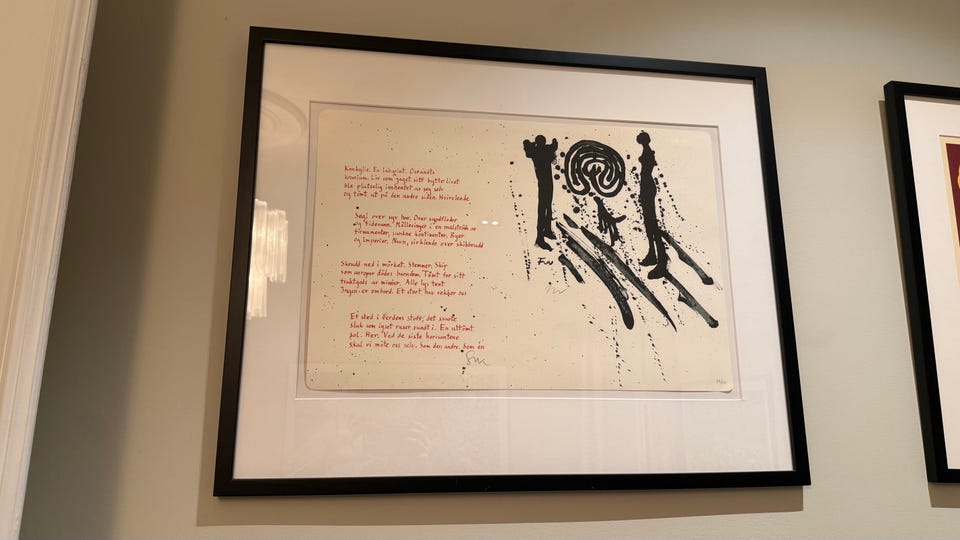 Konkylie. En labyrint. Ørevindts
kranium. Liv som gaget sitt bytte livet
ble plutselig innhentet av seg selv
og tømt ut på den andre siden Hvirvlende.
Segl over syv hav. Over
og tidevann. Mølleringer i en malstrøm av
firmamenter, sunkne kontinenter. Byer
og imperier. Navn, sirklende over skibbrudd
Skrudd ned i mørket. Stemmer. Skip
som anroper dødes barndom. Tømt for sitt
av minner. Alle lys tent
Ingen er ombord. Et stort hav rekker oss
Et sted i Verdens stoff, det svarte
blek som lyset raser rundt i. En uttømt
pol. Her. Ved de siste horisontene
skal vi møte oss selv. Som den andre. Som én